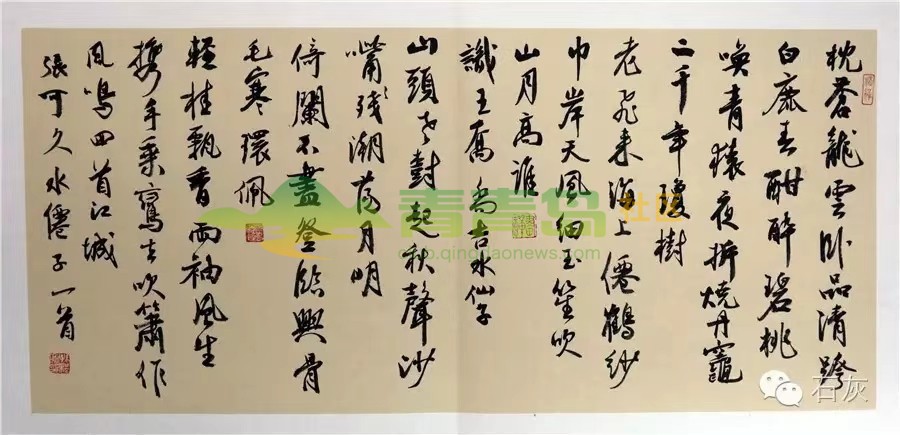 枕蒼龍雲卧品清跨
白鹿春酣醉碧桃
喚青猿夜拆燒丹竈
二千年瓊樹
老飛来海上僊鶴紗
巾岸天風細玉笙吹
山月高誰
識王喬 喬吉水仙子
山頭老對起秋聲沙
觜殘潮蕩月明
倚闌不盡登臨興骨
毛寒環佩
輕桂飄香兩袖風生
携手乘鸞去吹簫作
鳳鳴回首江城
張可久水僊子一首
青青岛社区
club.qingdaonews.com
石灰